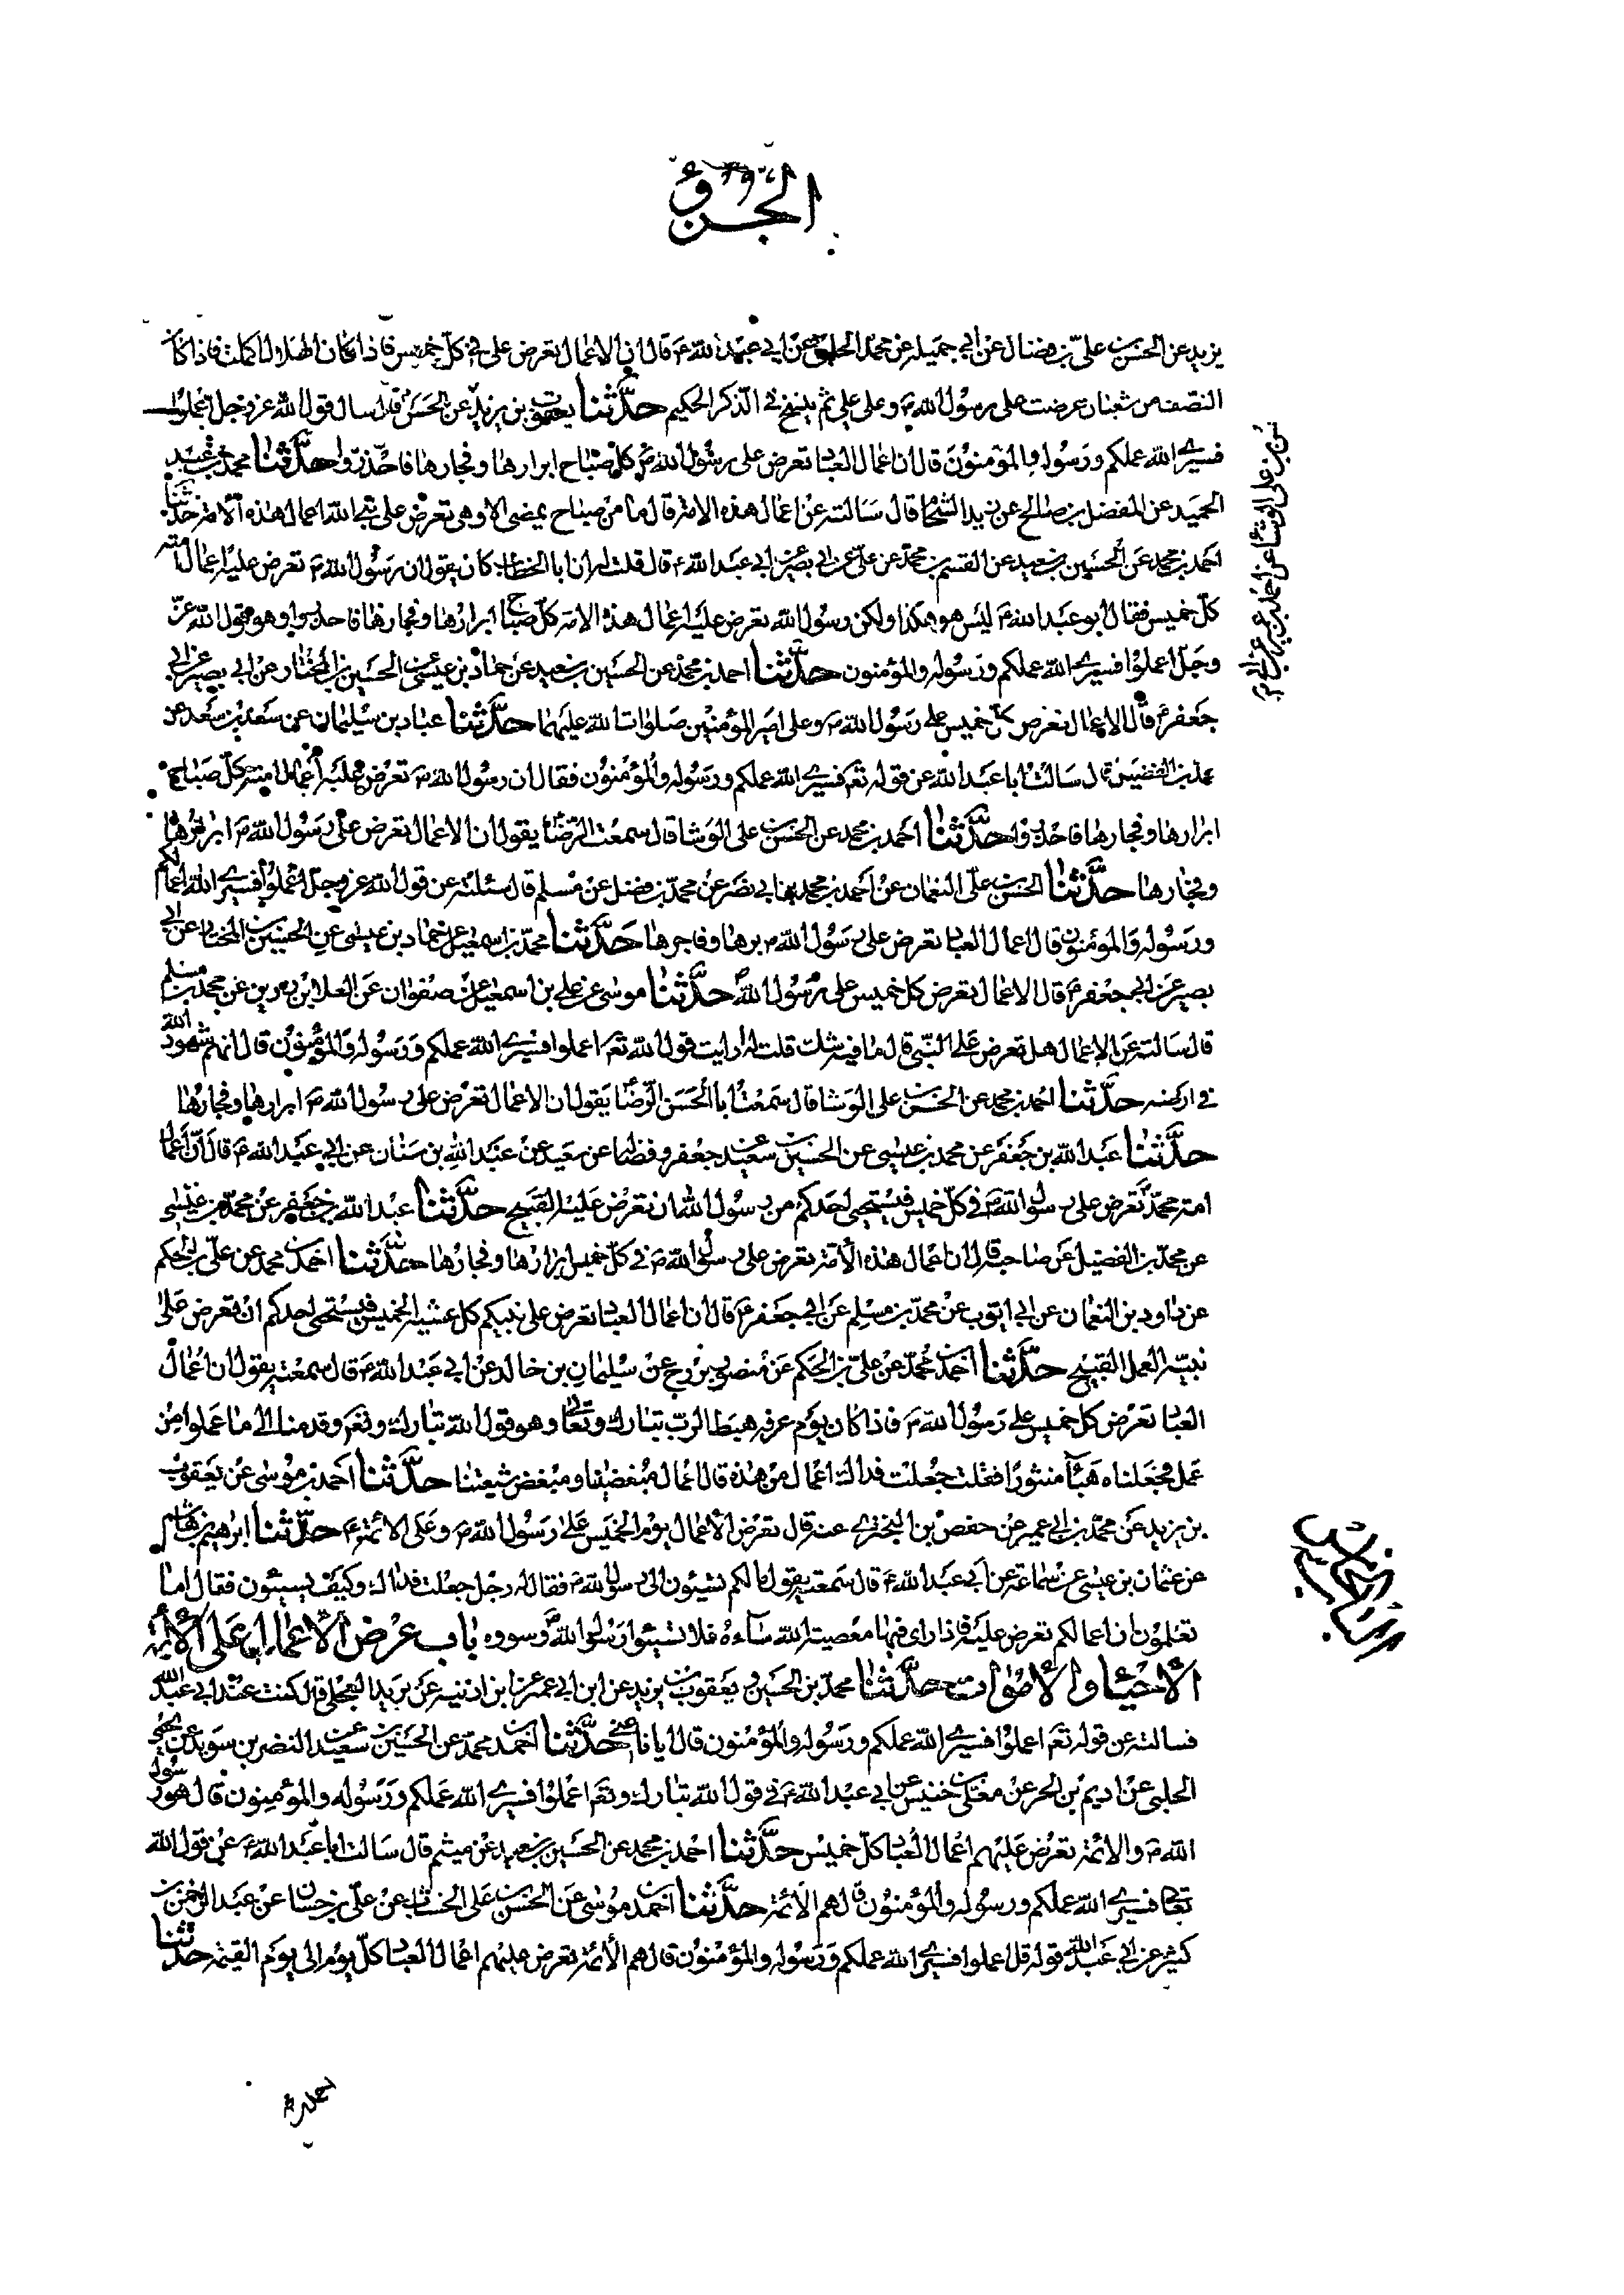 الجزؤ
يزيد عن الحسن بن علي بن فضال عن ابي جميلة عن محمد الحلبي عن ابي عبد الله ع قال ان الاعمال تعرض علي في كل خميس فاذا كان الهلال اكملت فاذا كان
النصف من شعبان عرضت على رسول الله ص وعلى علي ثم ينسخ في الذكر الحكيم حدثنا يعقوب بن يزيد عن الحسن قال سال قول الله عز وجل اعملوا
فسيرى الله عملكم ورسوله والمؤمنون قال ان اعمال العباد تعرض على رسول الله ص كل صباح ابرارها وفجارها فاحذروا حدثنا محمد بن عبد
الحميد عن المفضل بن صالح عن زيد الشحام قال سالته عن اعمال هذه الامة قال ما من صباح يمضى الا وهى تعرض على نبى الله اعمال هذه الامة حدثنا
احمد بن محمد عن الحسين بن سعيد عن القسم بن محمد عن علي عن ابى بصير عن ابى عبد الله ع قال قلت له ان ابا الخطاب كان يقول ان رسول الله ص تعرض عليه اعمال امته
كل خميس فقال ابو عبد الله ع ليس هو هكذا ولكن رسول الله تعرض عليه اعمال هذه الامة كل صباح ابرارها وفجارها فاحذروا وهو قول الله عز
وجل اعملوا فسيرى الله عملكم ورسوله والمؤمنون حدثنا احمد بن محمد عن الحسين بن سعيد عن حماد بن عيسى الحسين بن المختار عن ابى بصير عن ابى
جعفر ع قال الاعمال تعرض كل خميس على رسول الله ص وعلى امير المؤمنين صلوات الله عليهما حدثنا عباد بن سليمان عن سعد بن سعد عن
محمد بن الفضيل قال سالت ابا عبد الله عن قوله تع فسيرى الله عملكم ورسوله والمؤمنون فقال ان رسول الله ص تعرض عليه اعمال امته كل صباح
ابرارها وفجارها فاحذروا حدثنا احمد بن محمد عن الحسن بن على الوشا قال سمعت الرضا يقول ان الاعمال تعرض على رسول الله ص ابرارها
وفجارها حدثنا الحسن بن علي النعمان عن احمد بن محمد بن ابى نصر عن محمد بن فضل عن مسلم قال سئلته عن قول الله عز وجل اعملوا فسيرى الله عملكم
ورسوله والمؤمنون قال اعمال العباد تعرض على رسول الله ص برها وفاجرها حدثنا محمد بن اسمعيل عن حماد بن عيسى عن الحسين بن المختار عن ابى
بصير عن ابى جعفر ع قال الاعمال تعرض كل خميس على رسول الله ص حدثنا موسى عن على بن اسمعيل عن صفوان عن العلا بن رزين عن محمد بن مسلم
قال سالته عن الاعمال هل تعرض على النبى قال ما فيه شك قلت له ارايت قول الله تع اعملوا فسيرى الله عملكم ورسوله والمؤمنون قال انهم شهود الله
في ارضه حدثنا احمد بن محمد عن الحسن بن على الوشا قال سمعت ابا الحسن الرضا يقول ان الاعمال تعرض على رسول الله ص ابرارها وفجارها
حدثنا عبد الله بن جعفر عن محمد بن عيسى عن الحسين بن سعيد عن جعفر وفضالة عن سعيد عن عبد الله بن سنان عن ابى عبد الله ع قال ان اعمال
امة محمد تعرض على رسول الله ص في كل خميس فيستحيى احدكم من رسول الله ان تعرض عليه القبيح حدثنا عبد الله بن جعفر عن محمد بن عيسى
عن محمد بن الفضيل عن صاحبه قال ان اعمال هذه الامة تعرض على رسول الله ص في كل خميس ابرارها وفجارها حدثنا احمد بن محمد عن علي بن الحكم
عن داود بن النعمان عن ابى ايوب عن محمد بن مسلم عن ابى جعفر ع قال ان اعمال العباد تعرض على نبيكم كل عشية الخميس فيستحى احدكم ان تعرض على
نبيه العمل القبيح حدثنا احمد بن محمد عن علي بن الحكم عن منصور بزرج عن سليمان بن خالد عن ابى عبد الله ع قال سمعته يقول ان اعمال
العباد تعرض كل خميس على رسول الله ص فاذا كان يوم عرفة هبط الرب تبارك وتعالى وهو قول الله تبارك وتع وقدمنا الى ما عملوا من
عمل فجعلناه هباء منثورا فقلت جعلت فداك اعمال من هذه قال اعمال مبغضينا ومبغض شيعتنا حدثنا احمد بن موسى عن يعقوب
بن يزيد عن محمد بن ابى عمير عن حفص بن البخترى عنه قال تعرض الاعمال يوم الخميس على رسول الله ص وعلى الائمة ع حدثنا ابرهيم بن هاشم
عن عثمان بن عيسى عن سماعة عن ابى عبد الله ع قال سمعته يقول ما لكم تسيئون الى رسول الله ص فقال له رجل جعلت فداك وكيف يسيئون فقال اما
تعلمون ان اعمالكم تعرض عليه فاذا راى فيها معصية الله ساءه فلا تسيئوا رسول الله وسروه باب عرض الاعمال على الائمة
الاحياء والاموات حدثنا محمد بن الحسين ويعقوب بن يزيد عن ابن ابى عمير عن ابن اذنيه عن بريد العجلى قال كنت عند ابى عبد الله
فسالته عن قوله تع اعملوا فسيرى الله عملكم ورسوله والمؤمنون قال ايانا عنى حدثنا احمد بن محمد عن الحسين بن سعيد عن النضر بن سويد عن يحيى
الحلبى عن اديم بن الحر عن معلى بن خنيس عن ابى عبد الله ع في قول الله تبارك وتع اعملوا فسيرى الله عملكم ورسوله والمؤمنون قال هو رسول
الله ص والائمة تعرض عليهم اعمال العباد كل خميس حدثنا احمد بن محمد عن الحسين بن سعيد عن ميثم قال سالت ابا عبد الله ع عن قول الله
تعالى فسيرى الله عملكم ورسوله والمؤمنون قال هم الائمة حدثنا احمد بن موسى عن الحسن بن على الخشاب عن علي بن حسان عن عبد الرحمن بن
كثير عن ابى عبد الله قوله قل اعملوا فسيرى الله عملكم ورسوله والمؤمنون قال هم الائمة تعرض عليهم اعمال العباد كل يوم الى يوم القيمة حدثنا
على الوشا عن احمد بن